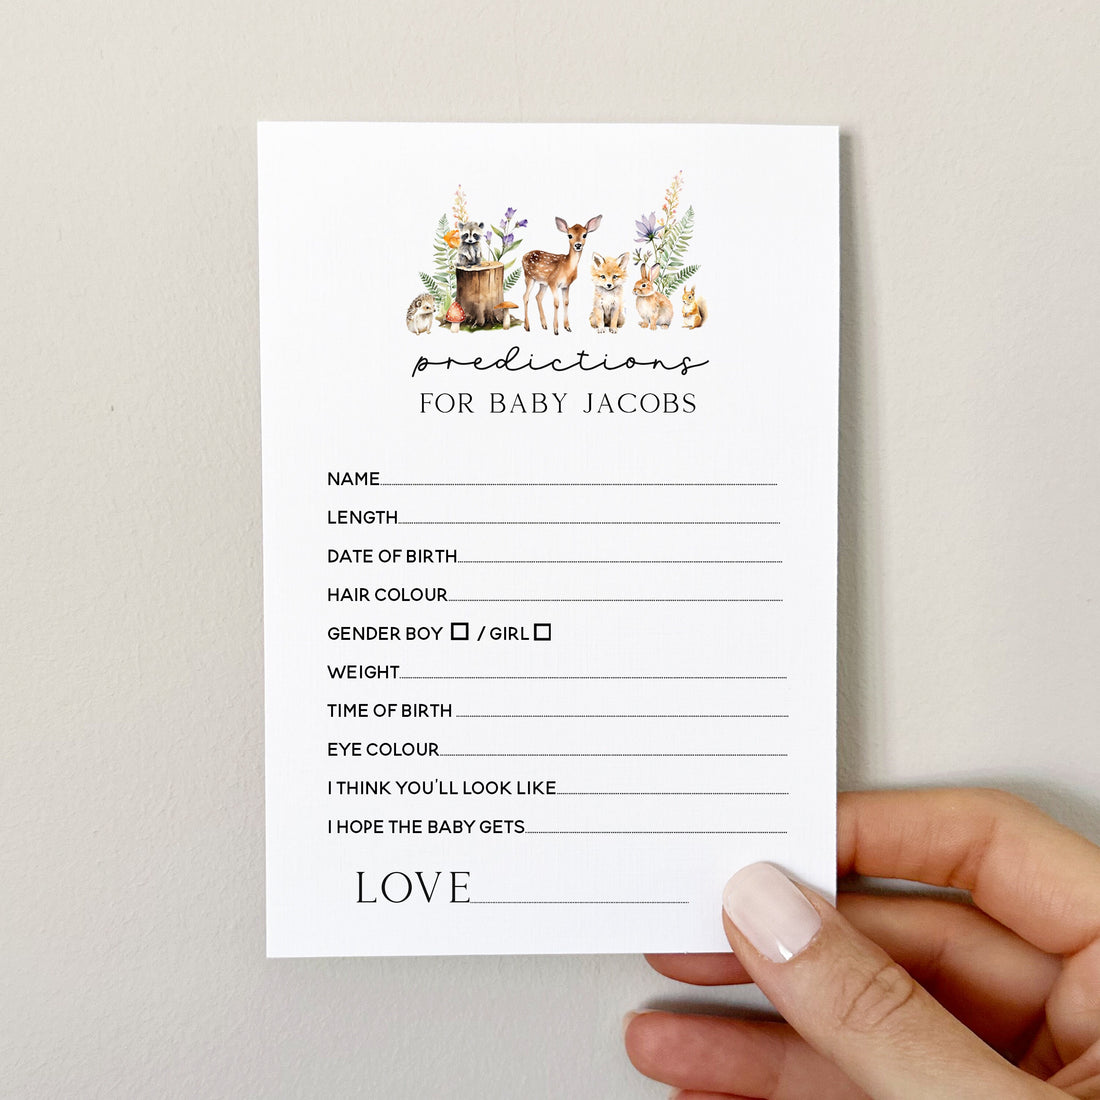 predictions
FOR BABY JACOBS
NAME
LENGTH
DATE OF BIRTH
HAIR COLOUR
GENDER BOY ☐ / GIRL ☐
WEIGHT
TIME OF BIRTH
EYE COLOUR
I THINK YOU'LL LOOK LIKE
I HOPE THE BABY GETS
LOVE